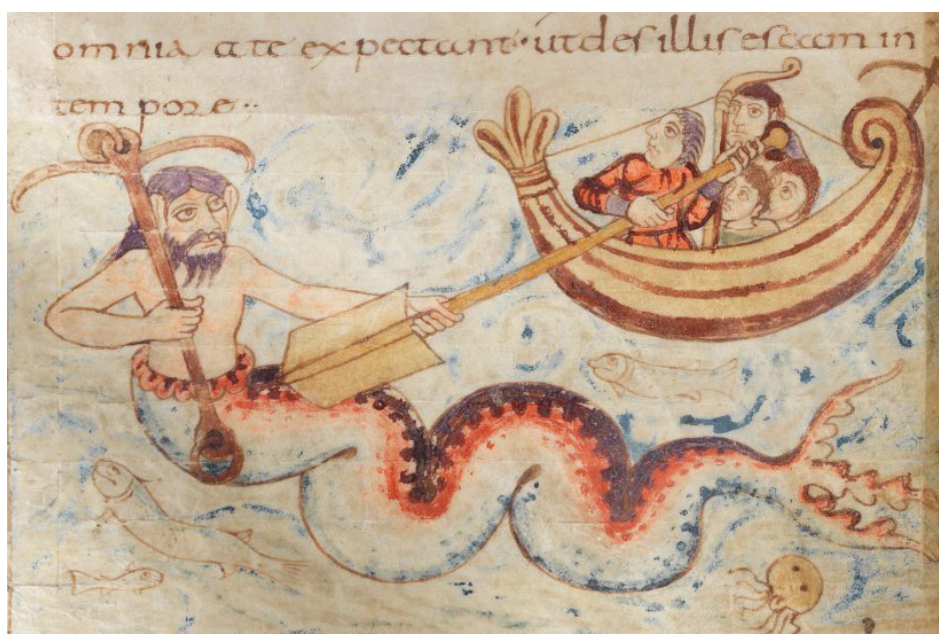 omnia a te expectant· ut des illis escam in
tempore··